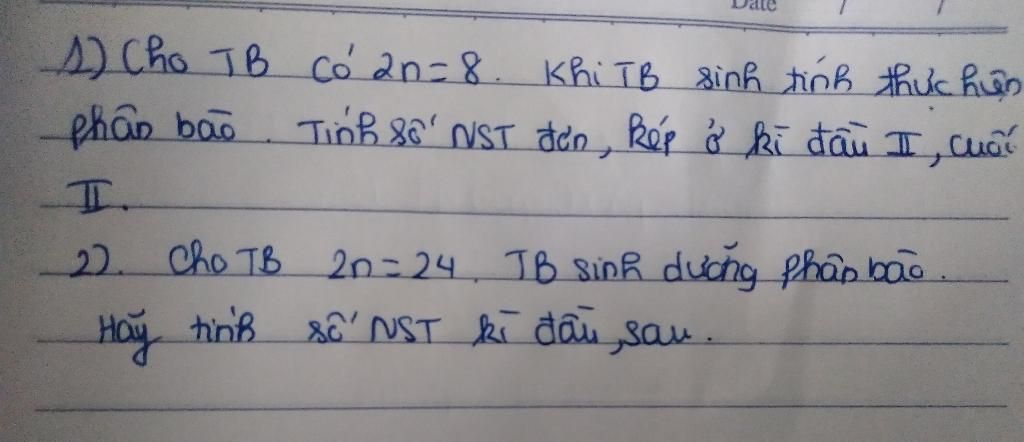 Date / /
1) Cho TB có 2n = 8. Khi TB sinh tính thực hiện
phân bào. Tính số NST đơn, kép ở kì đầu II, cuối
II.
2). Cho TB 2n = 24. TB sinh dưỡng phân bào.
Hãy tính số NST kì đầu, sau.